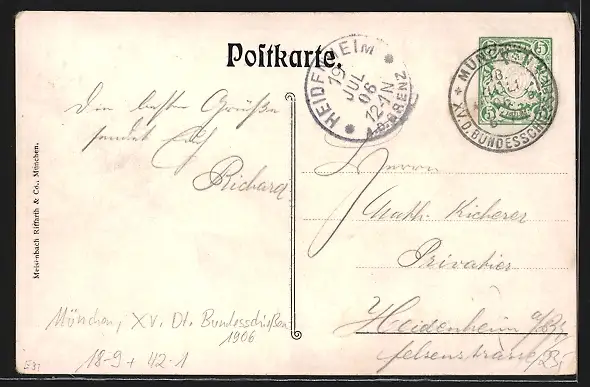 Postkarte.
HEIDENHEIM
19
JUL
06
12-1N
A.D. BRENZ
5
MÜNCHEN
XV.D.BUNDESSCH
Die besten Grüße
sendet Euch
Richard
Meisenbach Riffarth & Co., München.
Herrn
Math. Kicherer
Privatier
Heidenheim a/Bz
Felsenstrasse
München, XV. Dt. Bundesschießen
1906
18-9+ 42-1